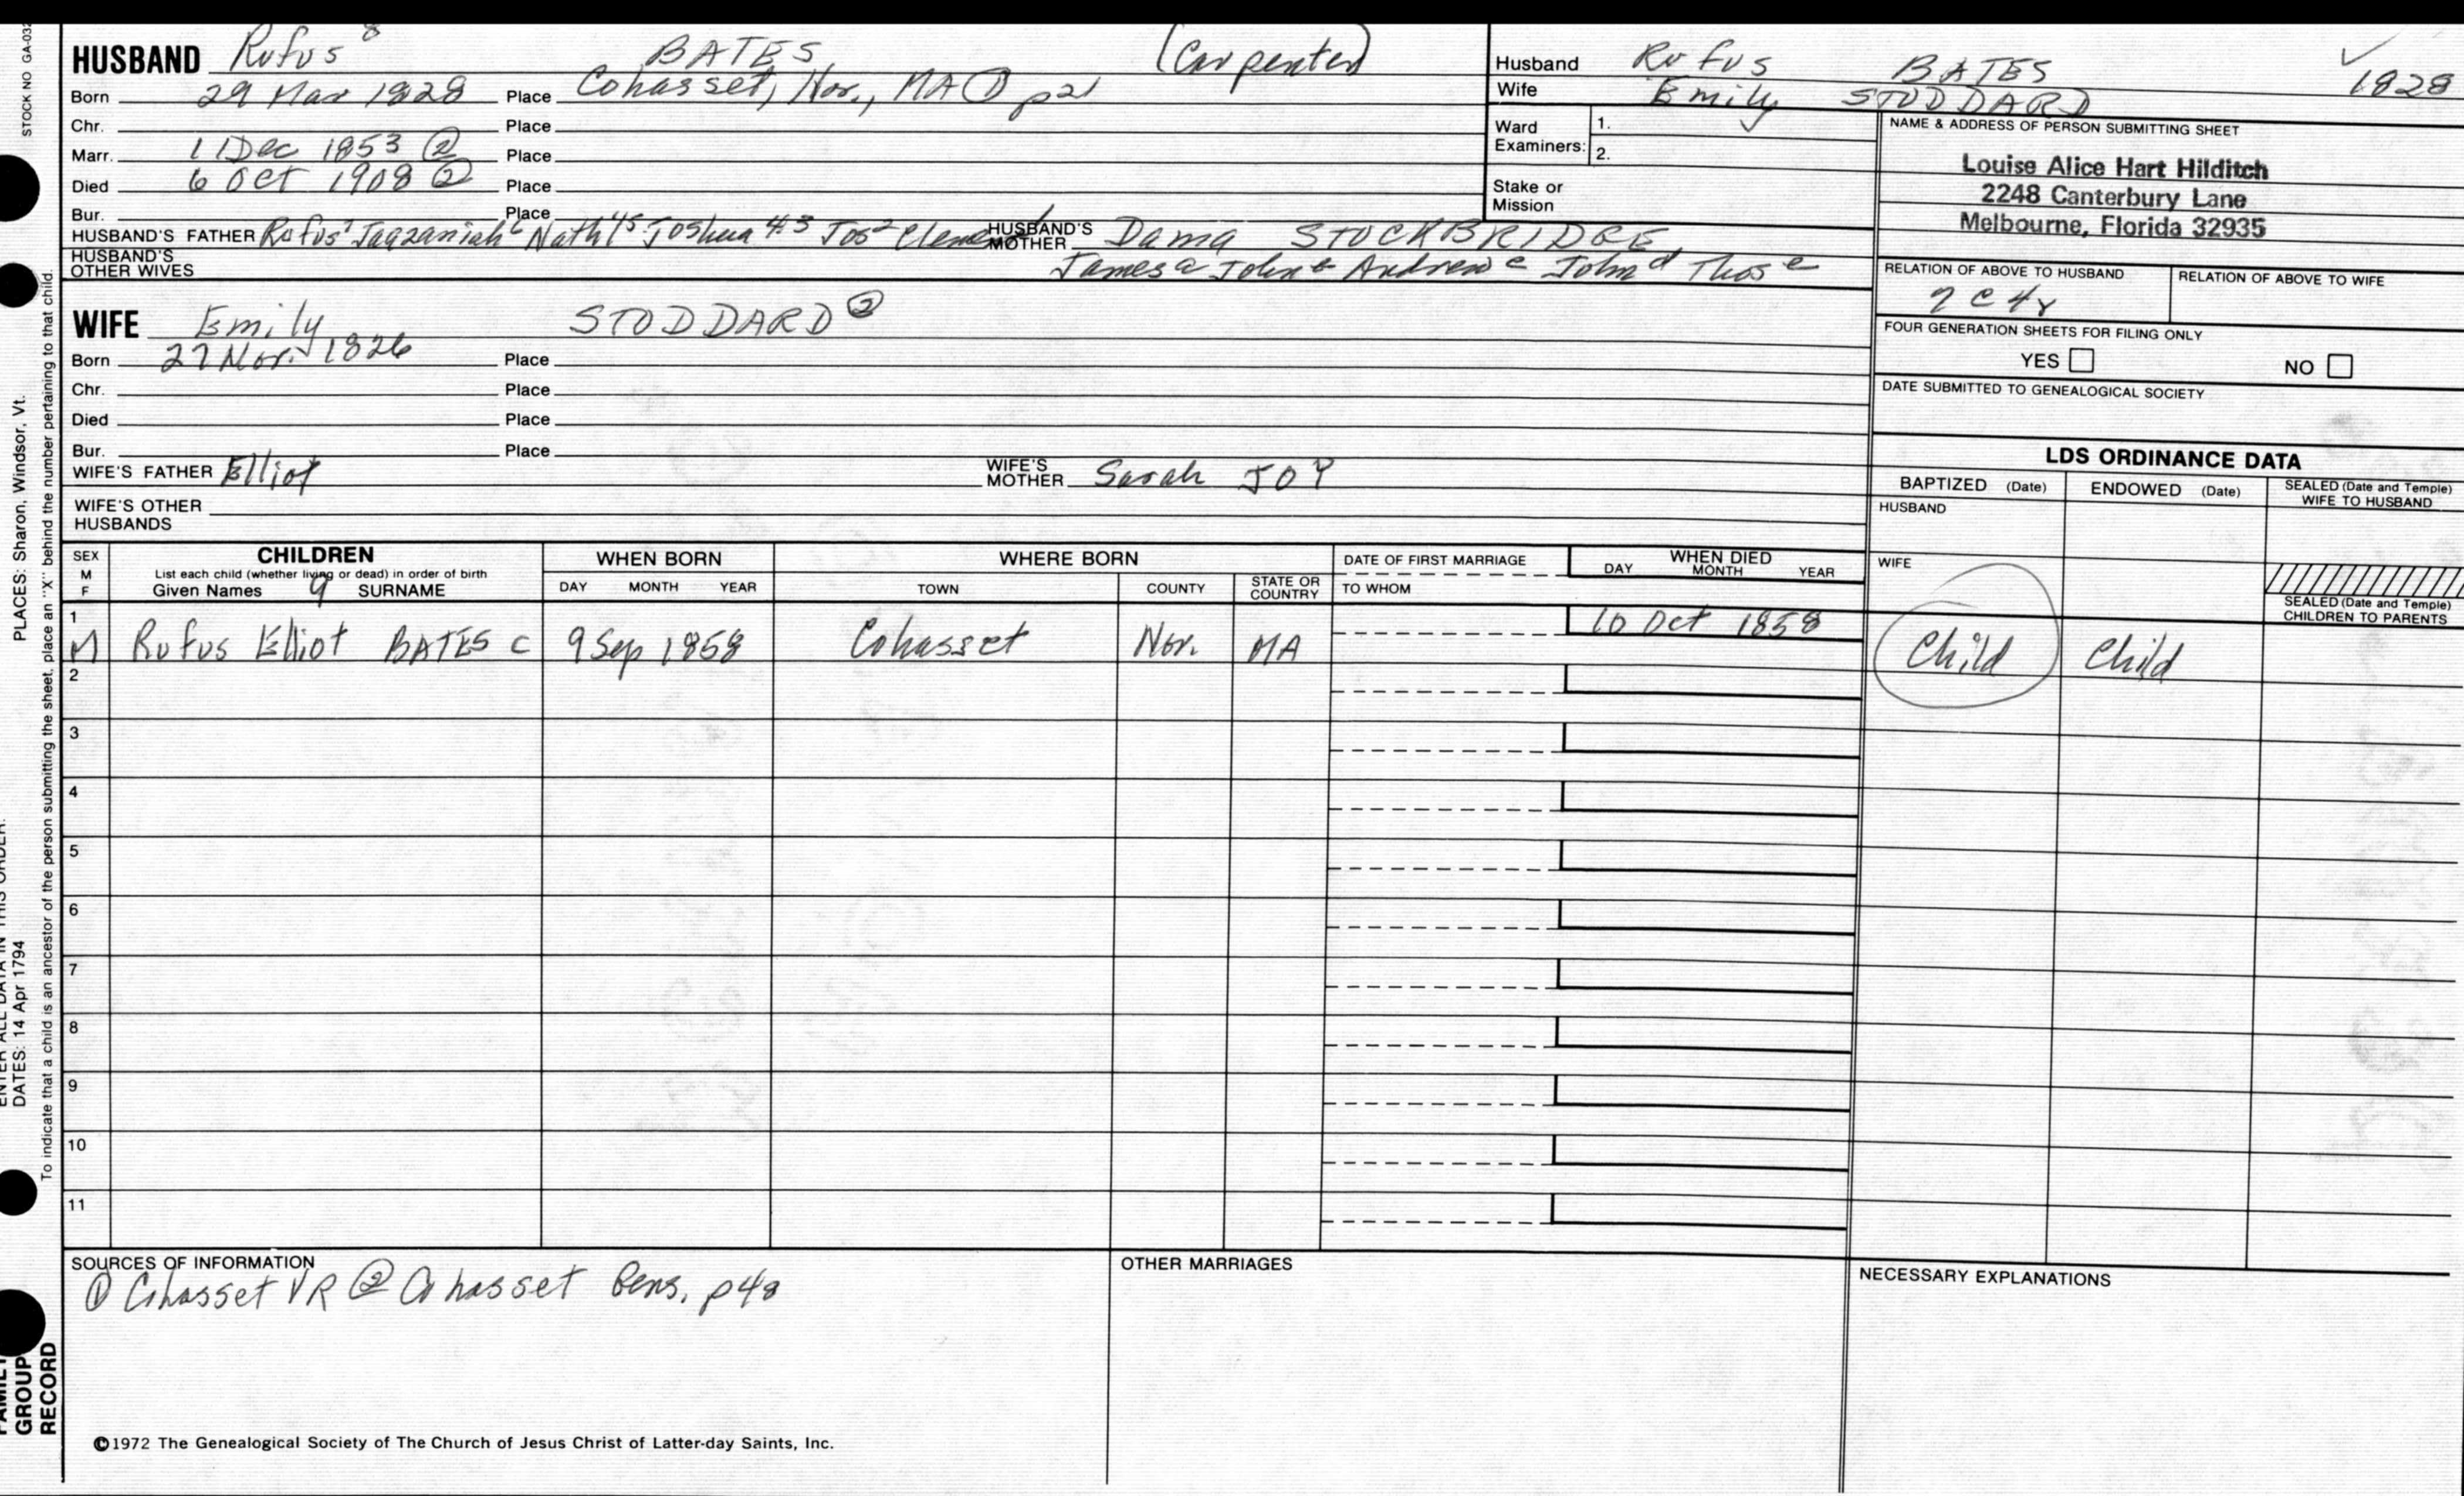 STOCK NO GA-032
HUSBAND Rufus 8 BATES (Carpenter)
Born 29 Mar 1828 Place Cohasset, Nor., MA ① p21
Chr. Place
Marr. 1 Dec 1853 ② Place
Died 6 Oct 1908 ② Place
Bur. Place
HUSBAND'S FATHER Rufus 7 Jaazaniah 6 Nath'l 5 Joshua 4 3 Jos 2 Clement HUSBAND'S MOTHER Dama STOCKBRIDGE,
HUSBAND'S OTHER WIVES James a John b Andrew c John d Thos e
Husband Rufus BATES 1828
Wife Emily STODDARD
Ward Examiners: 1.
2.
Stake or Mission
NAME & ADDRESS OF PERSON SUBMITTING SHEET
Louise Alice Hart Hilditch
2248 Canterbury Lane
Melbourne, Florida 32935
RELATION OF ABOVE TO HUSBAND RELATION OF ABOVE TO WIFE
7C4r
FOUR GENERATION SHEETS FOR FILING ONLY
YES NO
DATE SUBMITTED TO GENEALOGICAL SOCIETY
WIFE Emily STODDARD ②
Born 27 Nov. 1826 Place
Chr. Place
Died Place
Bur. Place
WIFE'S FATHER Elliot WIFE'S MOTHER Sarah JOY
WIFE'S OTHER HUSBANDS
LDS ORDINANCE DATA
BAPTIZED (Date) ENDOWED (Date) SEALED (Date and Temple) WIFE TO HUSBAND
HUSBAND
WIFE
SEALED (Date and Temple) CHILDREN TO PARENTS
SEX M F CHILDREN WHEN BORN WHERE BORN DATE OF FIRST MARRIAGE WHEN DIED
List each child (whether living or dead) in order of birth
Given Names 9 SURNAME DAY MONTH YEAR TOWN COUNTY STATE OR COUNTRY TO WHOM DAY MONTH YEAR
1 M Rufus Elliot BATES C 9 Sep 1858 Cohasset Nor. MA 10 Oct 1858 Child Child
2
3
4
5
6
7
8
9
10
11
SOURCES OF INFORMATION
① Cohasset VR ② Cohasset Gens. p48
OTHER MARRIAGES
NECESSARY EXPLANATIONS
©1972 The Genealogical Society of The Church of Jesus Christ of Latter-day Saints, Inc.
ENTER ALL DATA IN THIS ORDER:
DATES: 14 Apr 1794 PLACES: Sharon, Windsor, Vt.
To indicate that a child is an ancestor of the person submitting the sheet, place an "X" behind the number pertaining to that child.
FAMILY GROUP RECORD